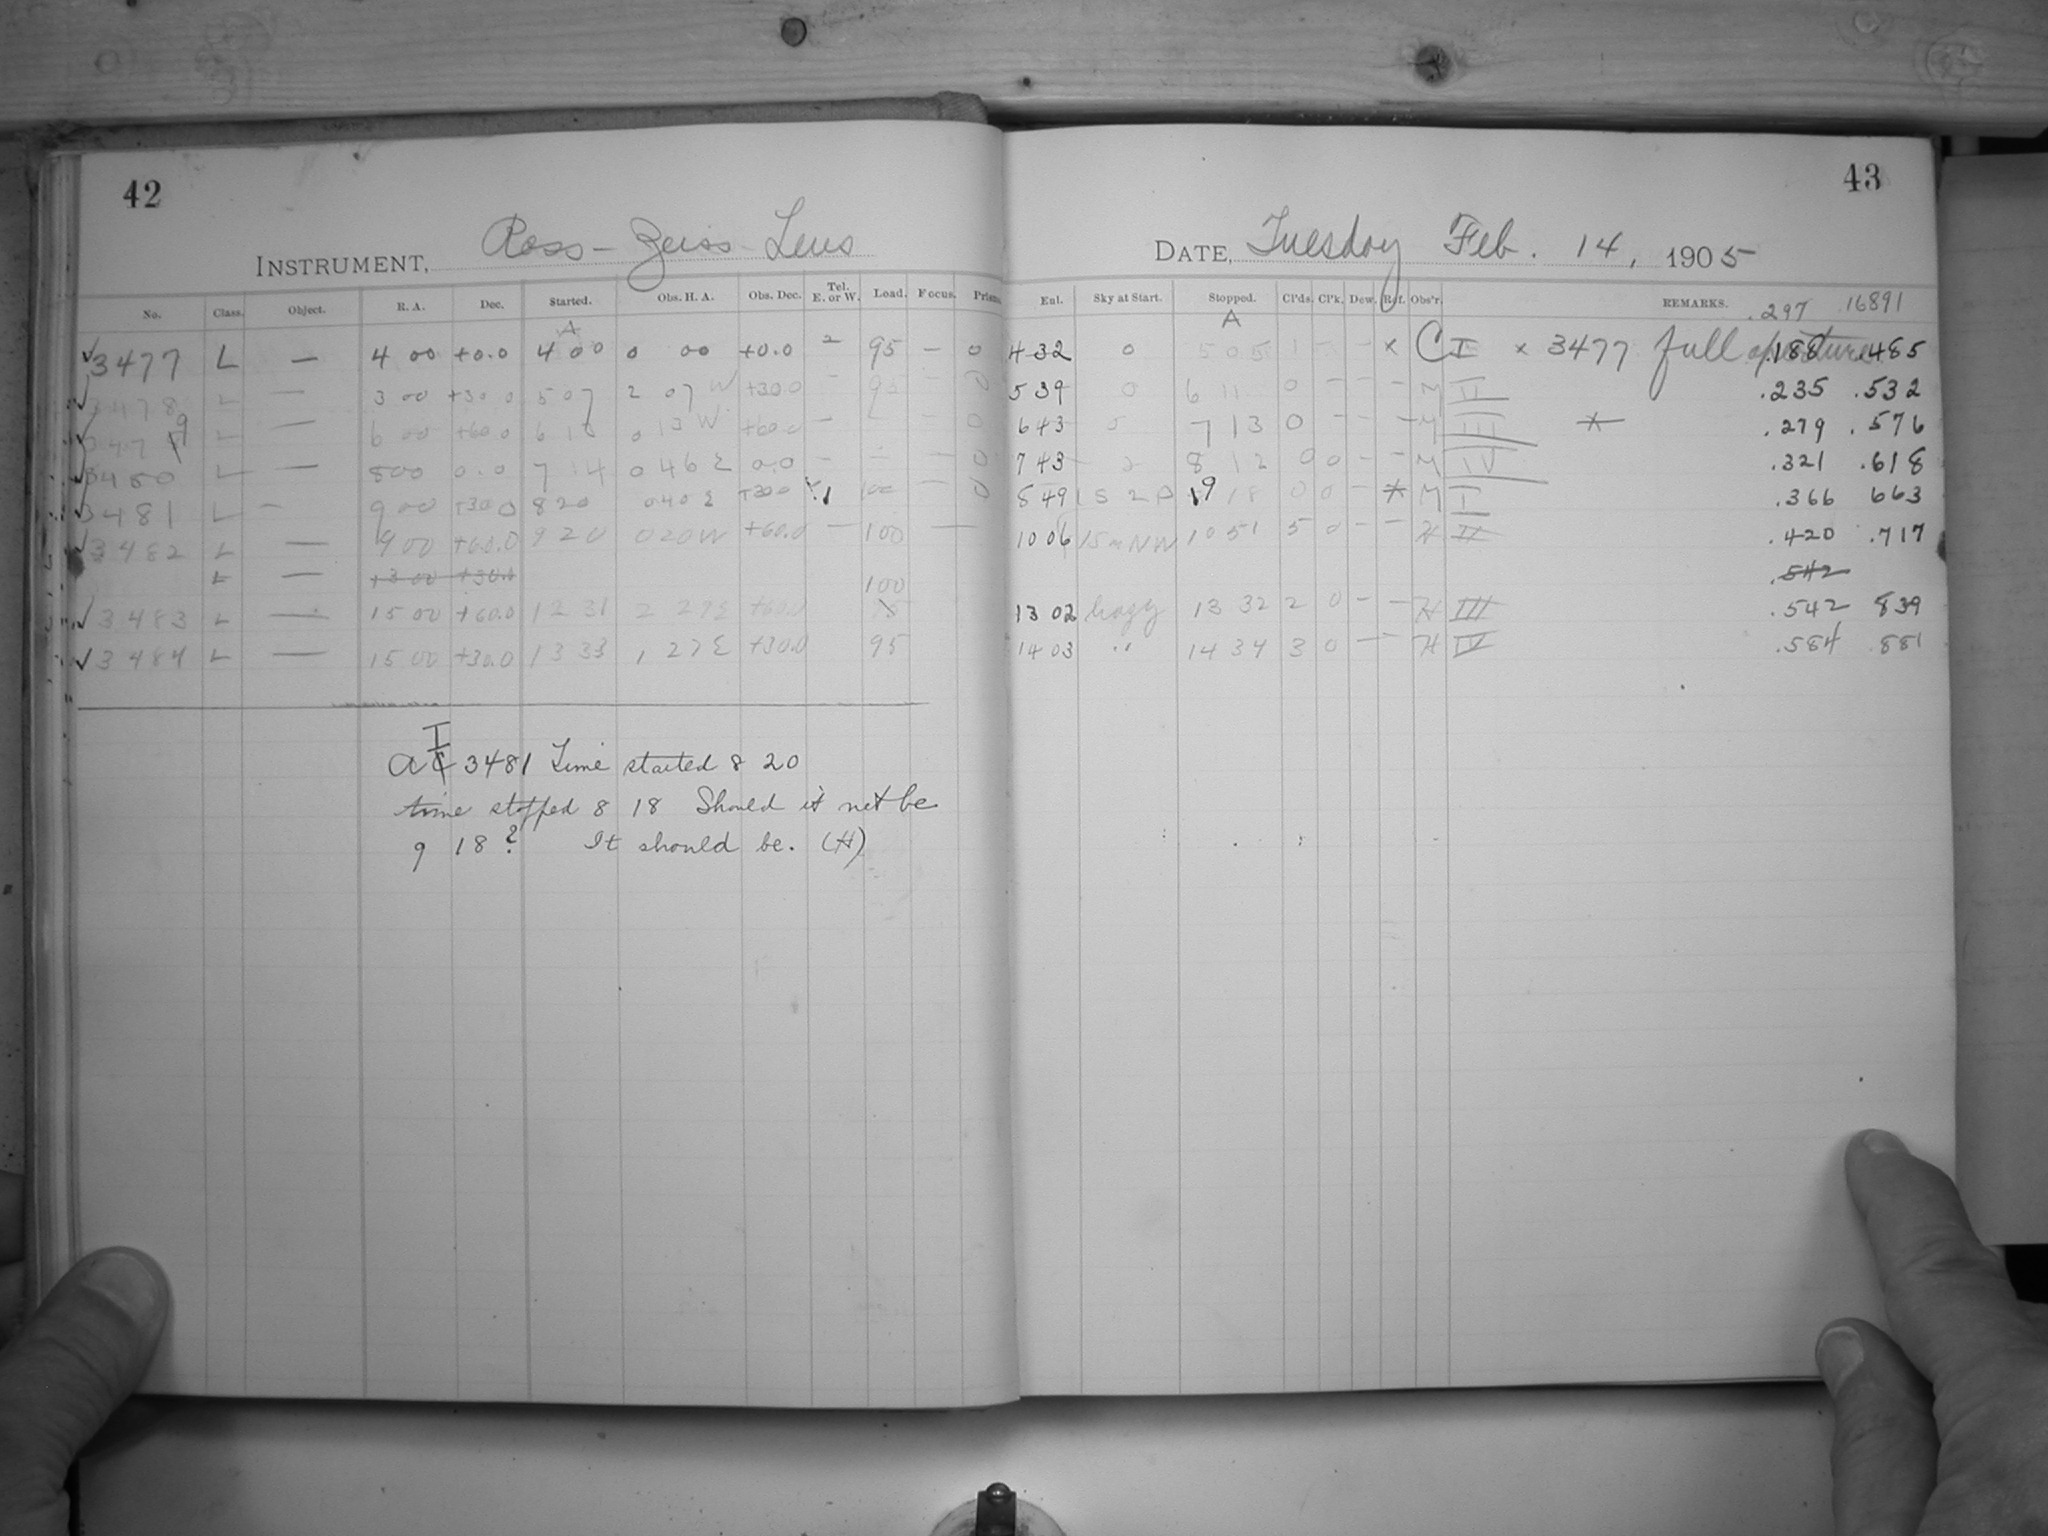 42
INSTRUMENT, Ross-Zeiss Lens
No. Class. Object. R. A. Dec. Started. Obs. H. A. Obs. Dec. Tel. E. or W. Load. Focus. Prism.
A
✓3477 L — 4 00 +0.0 4 00 0 00 +0.0 95 — 0
3478 L — 3 00 +30.0 5 07 2 07 W +30.0 — 95 — 0
3479 L — 6 00 +60.0 0 13 W +60.0 — — 0
✓3480 L — 8 00 0.0 7 14 0 46 E 0.0 — — — 0
✓3481 L — 9 00 +30.0 8 20 0 40 E +30.0 100 — 0
✓3482 L — 9 00 +60.0 9 20 0 20 W +60.0 — 100 —
L — +30.0 100
✓3483 L — 15 00 +60.0 12 31 2 27 E +60.0
✓3484 L — 15 00 +30.0 13 33 1 27 E +30.0 95
I
3481 Time started 8 20
time stopped 8 18 Should it not be
9 18? It should be. (H)
43
DATE, Tuesday Feb. 14, 1905
Eql. Sky at Start. Stopped. Cl'ds. Cl'k. Dew. Ref. Obs'r. REMARKS. .297 16891
A
4 32 0 5 05 1 — — × C I × 3477 full aperture .188 .485
5 39 0 6 11 0 — — — M II .235 .532
6 43 7 13 0 — — — M III * .279 .576
7 43 2 8 12 0 0 — — M IV .321 .618
8 49 9 18 0 0 — * M I .366 663
10 06 10 51 5 0 — — H II .420 .717
.542
13 02 hazy 13 32 2 0 — — H III .542 839
14 03 " 14 34 3 0 — — H IV .584 .881